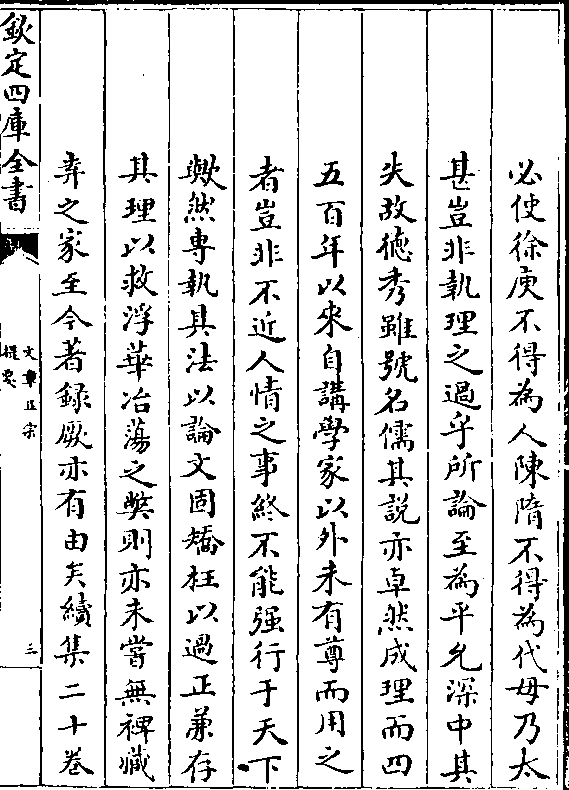 必使徐庾不得為人陳隋不得為代毋乃太
甚豈非執理之過乎所論至為平允深中其
失故徳秀雖號名儒其説亦卓然成理而四
五百年以來自講學家以外未有尊而用之
者豈非不近人情之事終不能强行于天下
歟然専執其法以論文固矯枉以過正兼存
其理以救浮華冶蕩之弊則亦未嘗無裨藏
弆之家至今著録厥亦有由矣續集二十卷
欽定四庫全書
文章正宗
提要
三